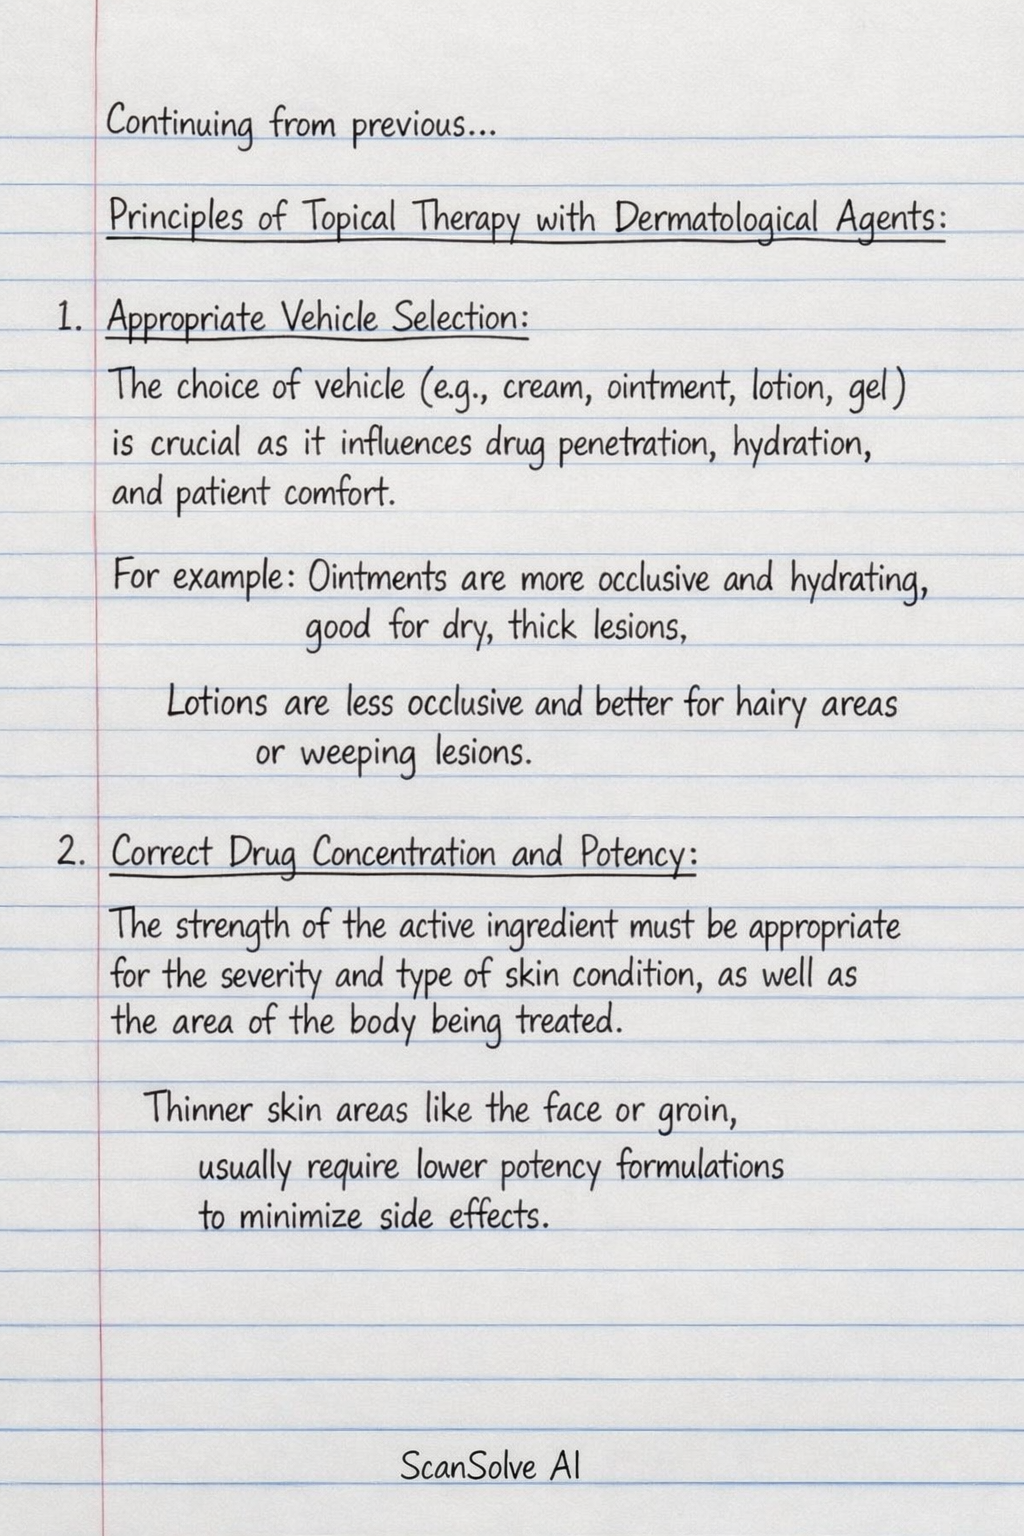 Continuing from previous...
Principles of Topical Therapy with Dermatological Agents:
1. Appropriate Vehicle Selection:
The choice of vehicle (e.g., cream, ointment, lotion, gel)
is crucial as it influences drug penetration, hydration,
and patient comfort.
For example: Ointments are more occlusive and hydrating,
good for dry, thick lesions,
Lotions are less occlusive and better for hairy areas
or weeping lesions.
2. Correct Drug Concentration and Potency:
The strength of the active ingredient must be appropriate
for the severity and type of skin condition, as well as
the area of the body being treated.
Thinner skin areas like the face or groin,
usually require lower potency formulations
to minimize side effects.
ScanSolve AI